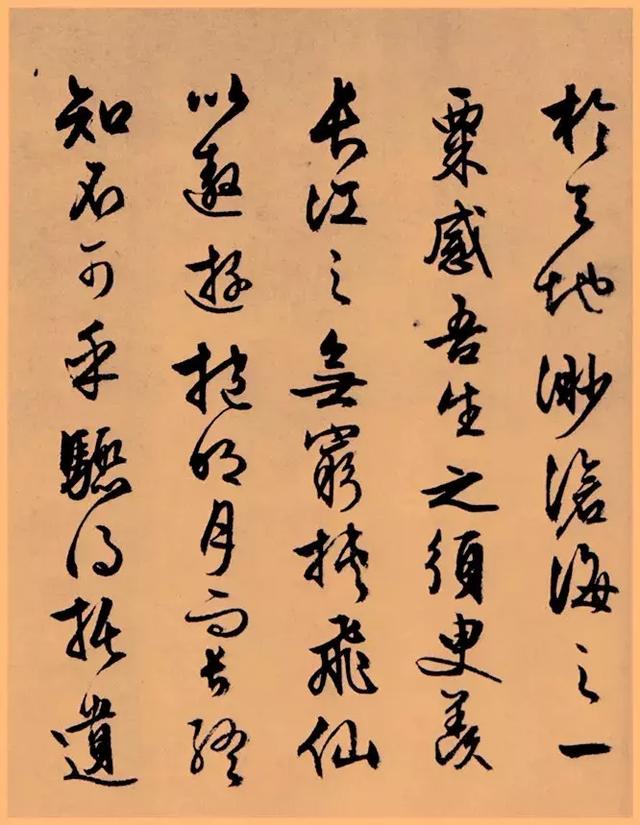 於天地渺滄海之一
粟感吾生之須臾羨
長江之無窮挾飛仙
以遨遊抱明月而長終
知不可乎驟得托遺